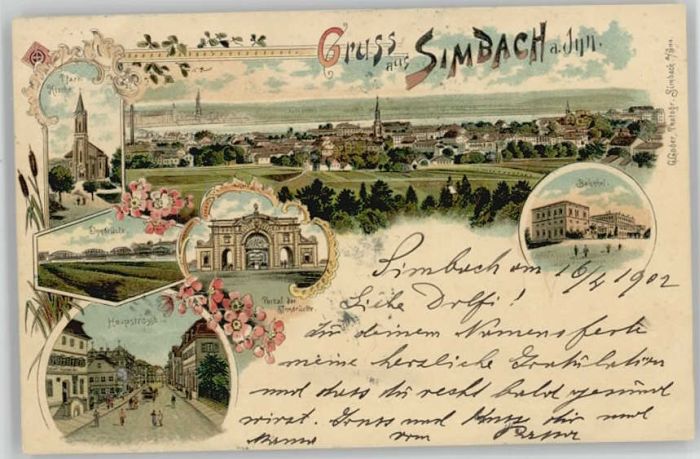 Gruss aus SIMBACH a. Inn.
Pfarr-
Kirche
Innbrücke
Portal der
Innbrücke
Bahnhof.
Hauptstrasse
Simbach am 16/4 1902
Liebe Dolfi!
Zu deinem Namensfeste
meine herzliche Gratulation
und dass du recht bald gesund
wirst. Gruss und Kuss dir und
Mama vom